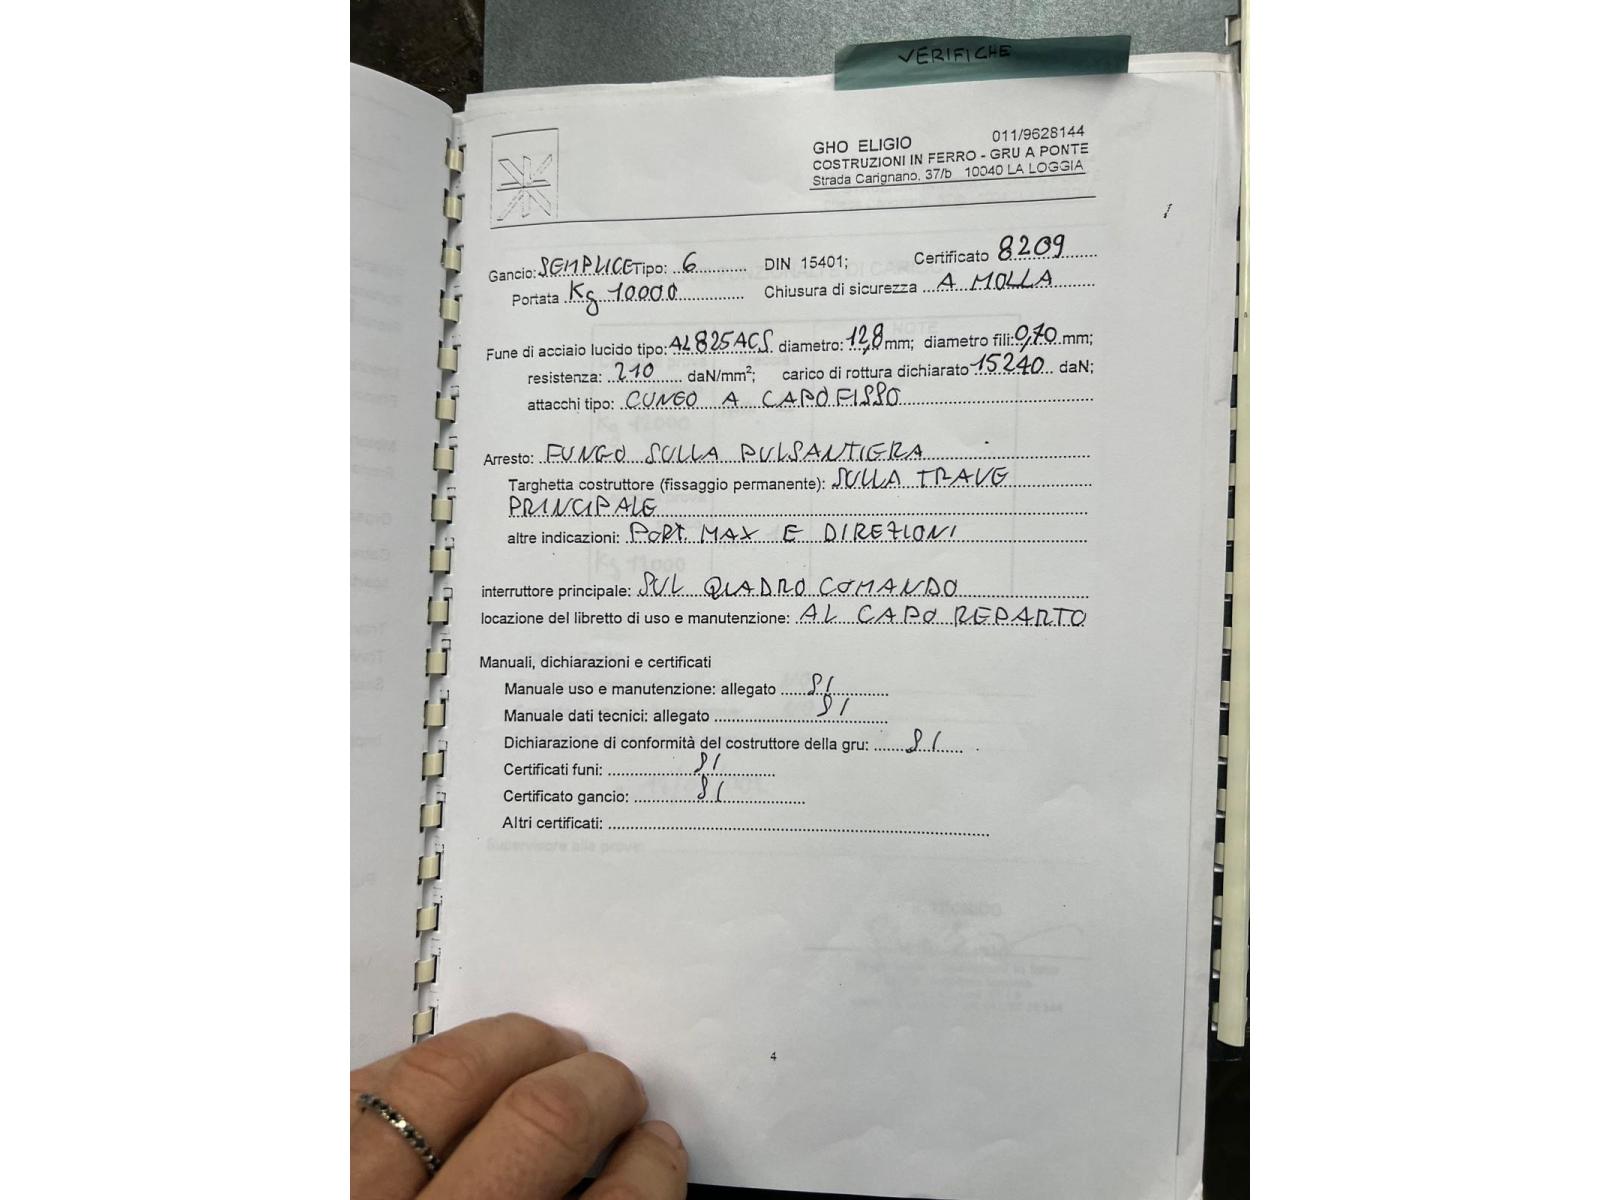 VERIFICHE
GHO ELIGIO 011/9628144
COSTRUZIONI IN FERRO - GRU A PONTE
Strada Carignano, 37/b 10040 LA LOGGIA
Gancio: SEMPLICE Tipo: 6 DIN 15401; Certificato 8209
Portata Kg 10000 Chiusura di sicurezza A MOLLA
Fune di acciaio lucido tipo: AL825ACS diametro: 12,8 mm; diametro fili: 0,70 mm;
resistenza: 210 daN/mm²; carico di rottura dichiarato 15240 daN;
attacchi tipo: CUNEO A CAPOFISSO
Arresto: FUNGO SULLA PULSANTIERA
Targhetta costruttore (fissaggio permanente): SULLA TRAVE
PRINCIPALE
altre indicazioni: PORT. MAX E DIREZIONI
interruttore principale: SUL QUADRO COMANDO
locazione del libretto di uso e manutenzione: AL CAPO REPARTO
Manuali, dichiarazioni e certificati
Manuale uso e manutenzione: allegato SI
Manuale dati tecnici: allegato SI
Dichiarazione di conformità del costruttore della gru: SI
Certificati funi: SI
Certificato gancio: SI
Altri certificati:
4